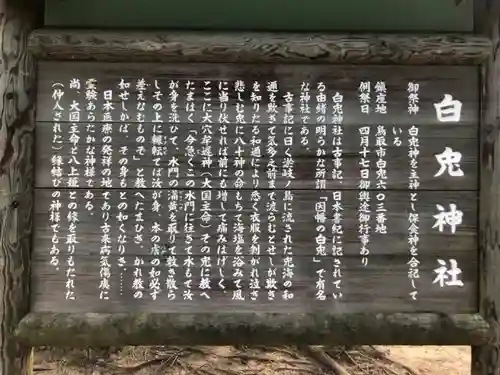 白兎神社
御祭神　白兎神を主神とし保食神を合記して
いる
鎮座地　鳥取市白兎六〇三番地
例祭日　四月十七日御輿渡御行事あり
白兎神社は古事記、日本書紀に記されてい
る由緒の明らかな所謂「因幡の白兎」で有名
な神社である。
古事記に曰く淤岐ノ島に流された兎海の和
邇を欺きて気多之前まで渡らむとせしが欺き
を知りたる和邇により悉く衣服を剝がれ泣き
悲しむ兎に八十神の命もちて海塩を浴みて風
に當り伏せれば前にも増して痛み苦しく、
ここに大穴牟遅神（大国主命）その兎に教へ
たまはく「今急くこの水門に往きて水もて汝
が身を洗ひて、水門の蒲黄を取りて敷き散ら
しその上に輾転てば汝が身、本の膚の如必ず
差きなむものぞ」と教へたまひき、かれ教の
如せしかば、その身もとの如くなりき……
日本医療の発祥の地であり古来病気傷痍に
霊験あらたかな神様である。
尚、大国主命と八上姫との縁を取りもたれた
（仲人された）縁結びの神様でもある。